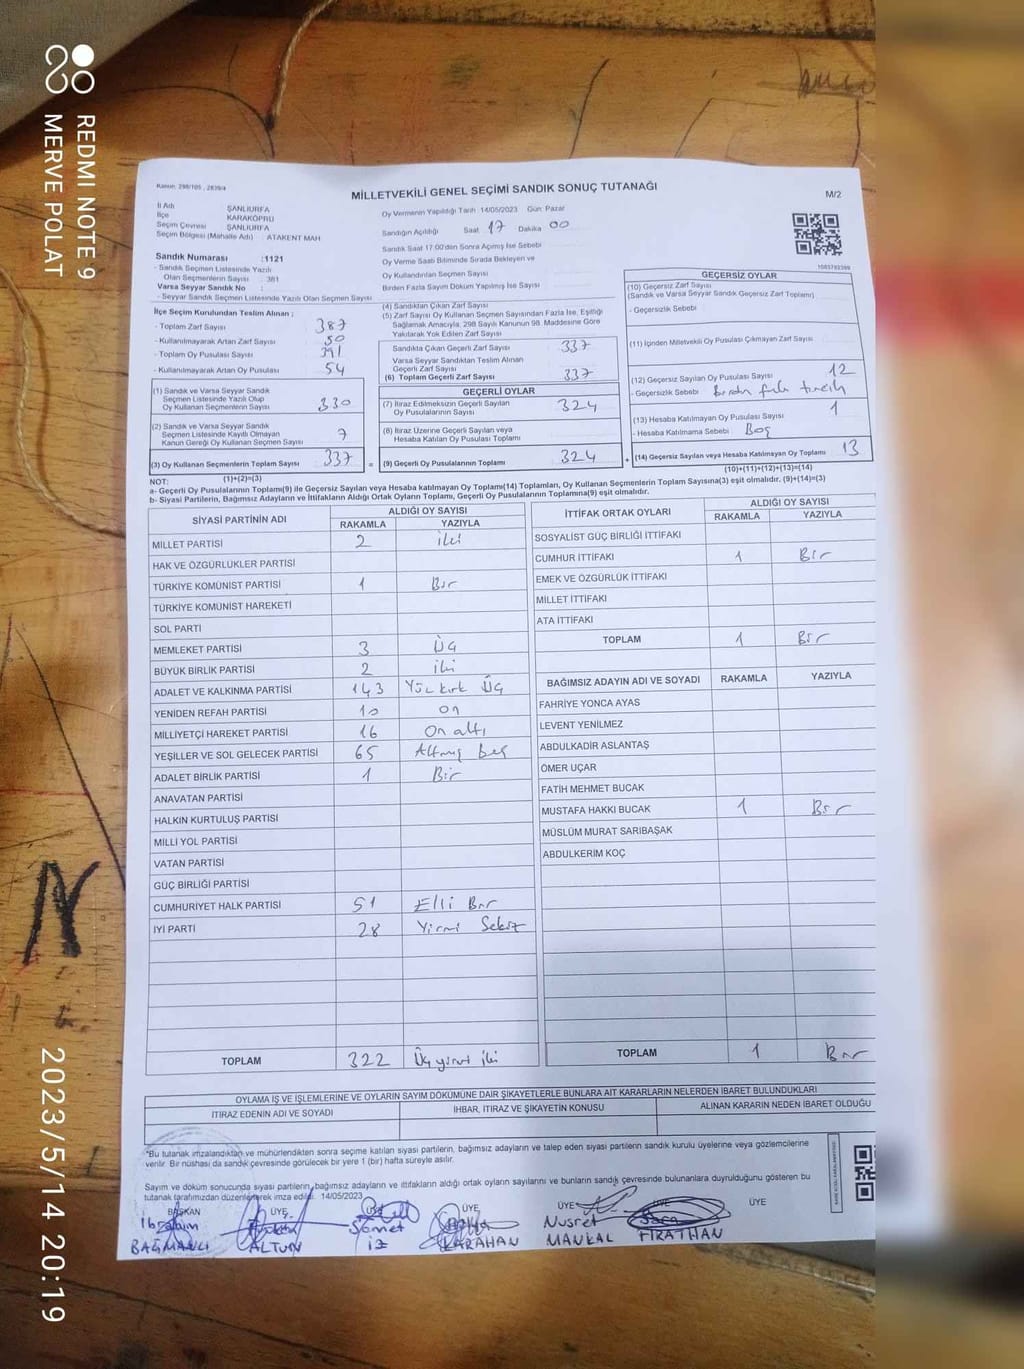 REDMI NOTE 9
MERVE POLAT
2023/5/14 20:19
Kanun: 298/105 , 2839/4
MİLLETVEKİLİ GENEL SEÇİMİ SANDIK SONUÇ TUTANAĞI
M/2
İl Adı ŞANLIURFA
İlçe KARAKÖPRÜ
Seçim Çevresi ŞANLIURFA
Seçim Bölgesi (Mahalle Adı) : ATAKENT MAH
Sandık Numarası :1121
- Sandık Seçmen Listesinde Yazılı
Olan Seçmenlerin Sayısı : 381
Varsa Seyyar Sandık No :
- Seyyar Sandık Seçmen Listesinde Yazılı Olan Seçmen Sayısı
Oy Vermenin Yapıldığı Tarih 14/05/2023 Gün: Pazar
Sandığın Açıldığı Saat 17 Dakika 00
Sandık Saat 17:00'den Sonra Açımış İse Sebebi
Oy Verme Saati Bitiminde Sırada Bekleyen ve
Oy Kullandırılan Seçmen Sayısı
Birden Fazla Sayım Döküm Yapılmış İse Sayısı
İlçe Seçim Kurulundan Teslim Alınan ;
- Toplam Zarf Sayısı 387
- Kullanılmayarak Artan Zarf Sayısı 50
- Toplam Oy Pusulası Sayısı 391
- Kullanılmayarak Artan Oy Pusulası 54
(1) Sandık ve Varsa Seyyar Sandık
Seçmen Listesinde Yazılı Olup
Oy Kullanan Seçmenlerin Sayısı 330
(2) Sandık ve Varsa Seyyar Sandık
Seçmen Listesinde Kayıtlı Olmayan
Kanun Gereği Oy Kullanan Seçmen Sayısı 7
(3) Oy Kullanan Seçmenlerin Toplam Sayısı 337
(1)+(2)=(3)
(4) Sandıktan Çıkan Zarf Sayısı
(5) Zarf Sayısı Oy Kullanan Seçmen Sayısından Fazla İse, Eşitliği
Sağlamak Amacıyla, 298 Sayılı Kanunun 98. Maddesine Göre
Yakılarak Yok Edilen Zarf Sayısı
Sandıkta Çıkan Geçerli Zarf Sayısı 337
Varsa Seyyar Sandıktan Teslim Alınan
Geçerli Zarf Sayısı
(6) Toplam Geçerli Zarf Sayısı 337
GEÇERLİ OYLAR
(7) İtiraz Edilmeksizin Geçerli Sayılan
Oy Pusulalarının Sayısı 324
(8) İtiraz Üzerine Geçerli Sayılan veya
Hesaba Katılan Oy Pusulaları Toplamı
= (9) Geçerli Oy Pusulalarının Toplamı 324
GEÇERSİZ OYLAR
(10) Geçersiz Zarf Sayısı
(Sandık ve Varsa Seyyar Sandık Geçersiz Zarf Toplamı)
- Geçersizlik Sebebi
(11) İçinden Milletvekili Oy Pusulası Çıkmayan Zarf Sayısı
(12) Geçersiz Sayılan Oy Pusulası Sayısı 12
- Geçersizlik Sebebi Birden fazla tercih
(13) Hesaba Katılmayan Oy Pusulası Sayısı 1
- Hesaba Katılmama Sebebi Boş
+ (14) Geçersiz Sayılan veya Hesaba Katılmayan Oy Toplamı 13
(10)+(11)+(12)+(13)=(14)
NOT:
a- Geçerli Oy Pusulalarının Toplamı(9) ile Geçersiz Sayılan veya Hesaba katılmayan Oy Toplamı(14) Toplamları, Oy Kullanan Seçmenlerin Toplam Sayısına(3) eşit olmalıdır. (9)+(14)=(3)
b- Siyasi Partilerin, Bağımsız Adayların ve İttifakların Aldığı Ortak Oyların Toplamı, Geçerli Oy Pusulalarının Toplamına(9) eşit olmalıdır.
SİYASİ PARTİNİN ADI ALDIĞI OY SAYISI
RAKAMLA YAZIYLA
MİLLET PARTİSİ 2 iki
HAK VE ÖZGÜRLÜKLER PARTİSİ
TÜRKİYE KOMÜNİST PARTİSİ 1 Bir
TÜRKİYE KOMÜNİST HAREKETİ
SOL PARTİ
MEMLEKET PARTİSİ 3 Üç
BÜYÜK BİRLİK PARTİSİ 2 iki
ADALET VE KALKINMA PARTİSİ 143 Yüz kırk Üç
YENİDEN REFAH PARTİSİ 10 on
MİLLİYETÇİ HAREKET PARTİSİ 16 On altı
YEŞİLLER VE SOL GELECEK PARTİSİ 65 Altmış beş
ADALET BİRLİK PARTİSİ 1 Bir
ANAVATAN PARTİSİ
HALKIN KURTULUŞ PARTİSİ
MİLLİ YOL PARTİSİ
VATAN PARTİSİ
GÜÇ BİRLİĞİ PARTİSİ
CUMHURİYET HALK PARTİSİ 51 Elli Bir
İYİ PARTİ 28 Yirmi Sekiz
TOPLAM 322 Üç yirmi iki
İTTİFAK ORTAK OYLARI ALDIĞI OY SAYISI
RAKAMLA YAZIYLA
SOSYALİST GÜÇ BİRLİĞİ İTTİFAKI
CUMHUR İTTİFAKI 1 Bir
EMEK VE ÖZGÜRLÜK İTTİFAKI
MİLLET İTTİFAKI
ATA İTTİFAKI
TOPLAM 1 Bir
BAĞIMSIZ ADAYIN ADI VE SOYADI RAKAMLA YAZIYLA
FAHRİYE YONCA AYAS
LEVENT YENİLMEZ
ABDULKADİR ASLANTAŞ
ÖMER UÇAR
FATİH MEHMET BUCAK
MUSTAFA HAKKI BUCAK 1 Bir
MÜSLÜM MURAT SARIBAŞAK
ABDULKERİM KOÇ
TOPLAM 1 Bir
OYLAMA İŞ VE İŞLEMLERİNE VE OYLARIN SAYIM DÖKÜMÜNE DAİR ŞİKAYETLERLE BUNLARA AİT KARARLARIN NELERDEN İBARET BULUNDUKLARI
İTİRAZ EDENİN ADI VE SOYADI İHBAR, İTİRAZ VE ŞİKAYETİN KONUSU ALINAN KARARIN NEDEN İBARET OLDUĞU
*Bu tutanak imzalandıktan ve mühürlendikten sonra seçime katılan siyasi partilerin, bağımsız adayların ve talep eden siyasi partilerin sandık kurulu üyelerine veya gözlemcilerine
verilir. Bir nüshası da sandık çevresinde görülecek bir yere 1 (bir) hafta süreyle asılır.
Sayım ve döküm sonucunda siyasi partilerin, bağımsız adayların ve ittifakların aldığı ortak oyların sayılarını ve bunların sandık çevresinde bulunanlara duyrulduğunu gösteren bu
tutanak tarafımızdan düzenlenerek imza edildi. 14/05/2023
BAŞKAN ÜYE ÜYE ÜYE ÜYE ÜYE ÜYE
İbrahim BAĞMANCI
ALTUN
Samet İZ
KARAHAN
Nusret MANKAL
FIRATHAN